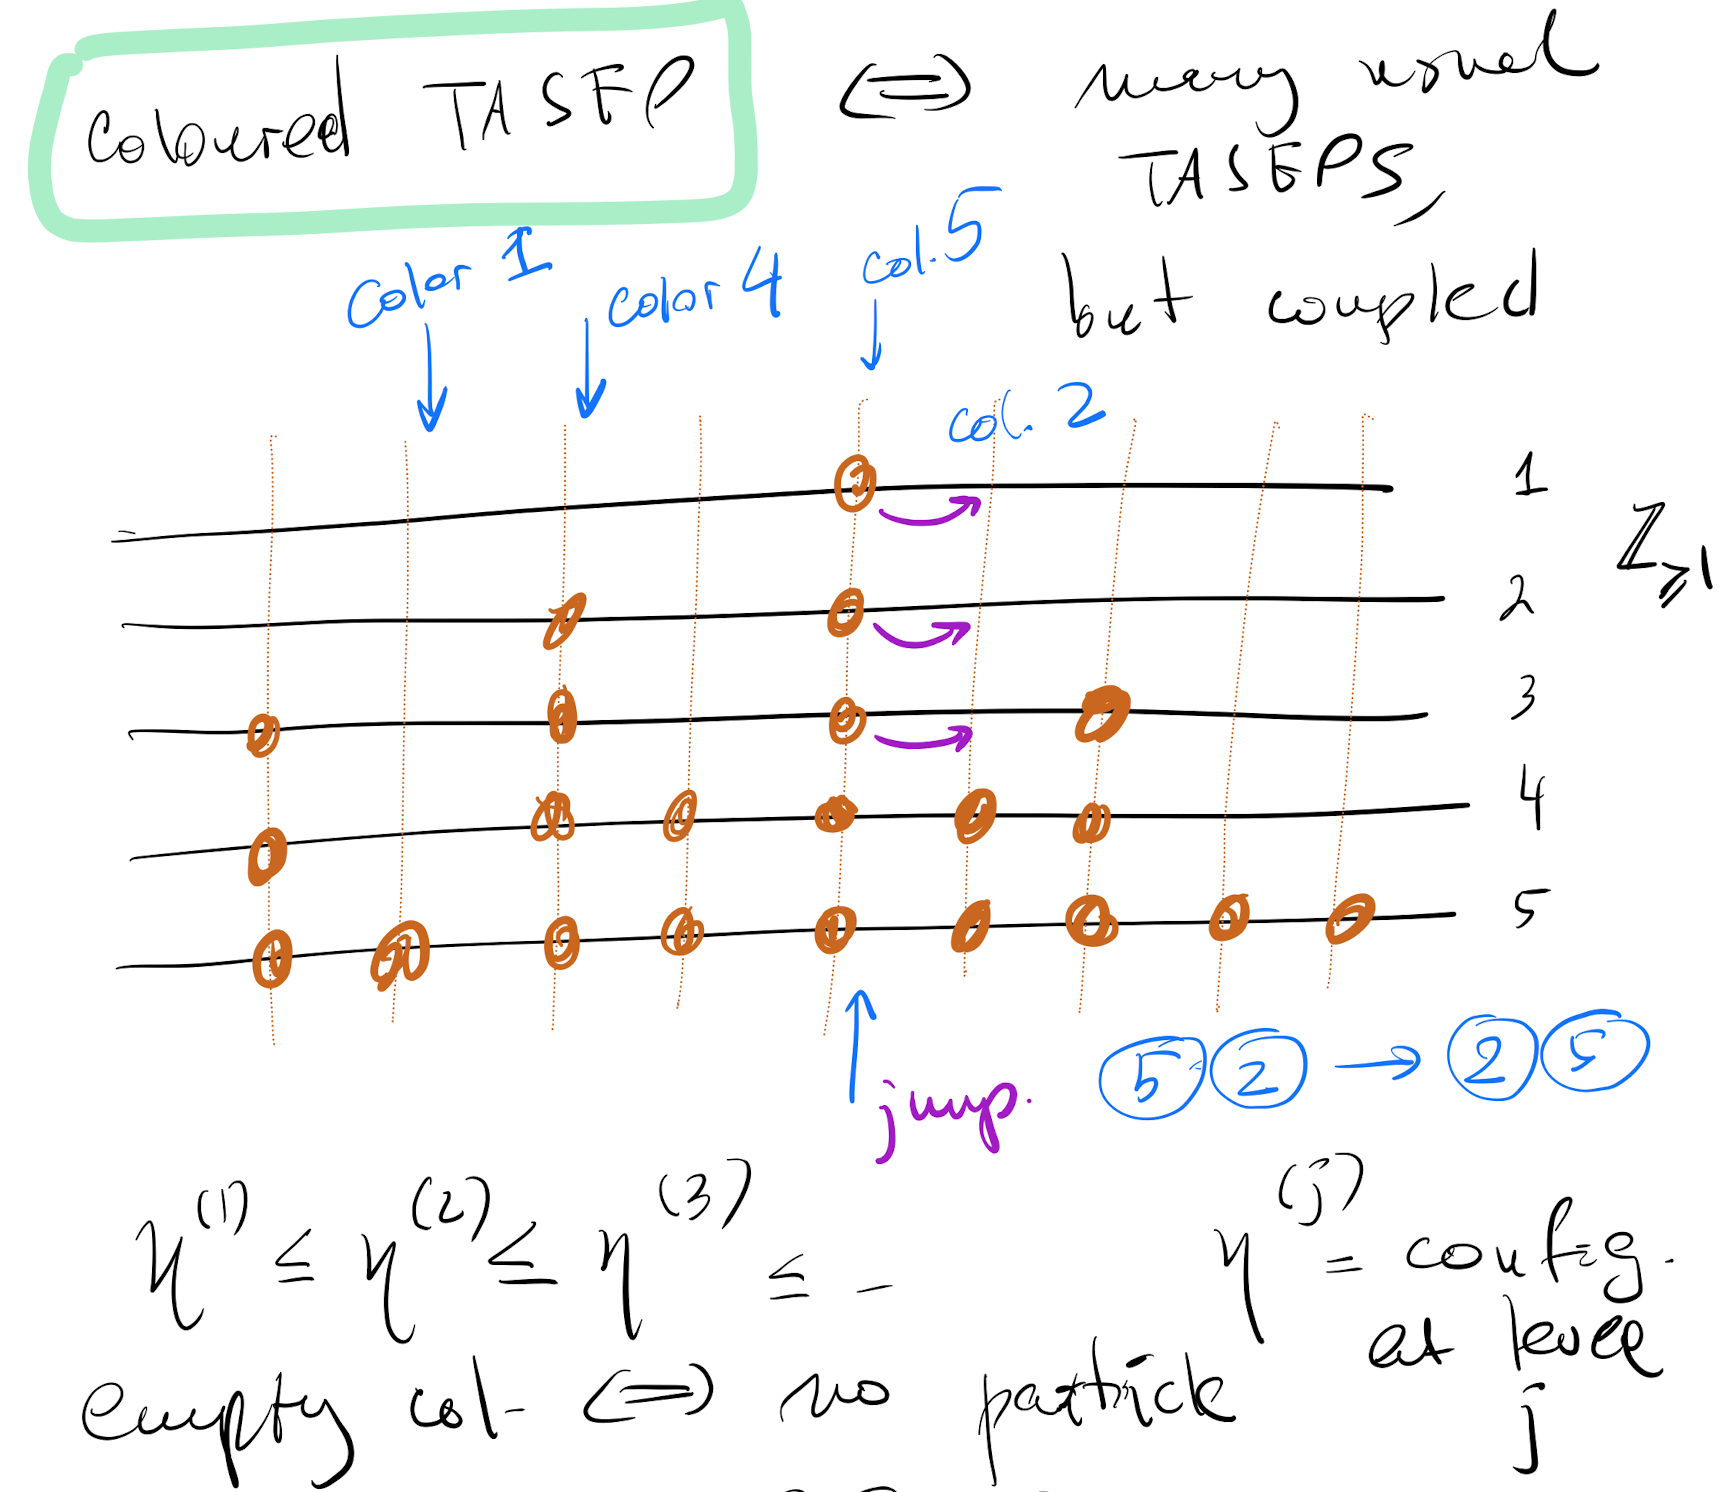 coloured TASEP ⟺ many usual
TASEPS,
but coupled
Color 1
color 4
col. 5
col. 2
1
ℤ≥1
2
3
4
5
jump.
⑤ ② → ② ⑤
η^(1) ≤ η^(2) ≤ η^(3) ≤ –
η^(j) = config.
at level
j
empty col. ⟺ no particle